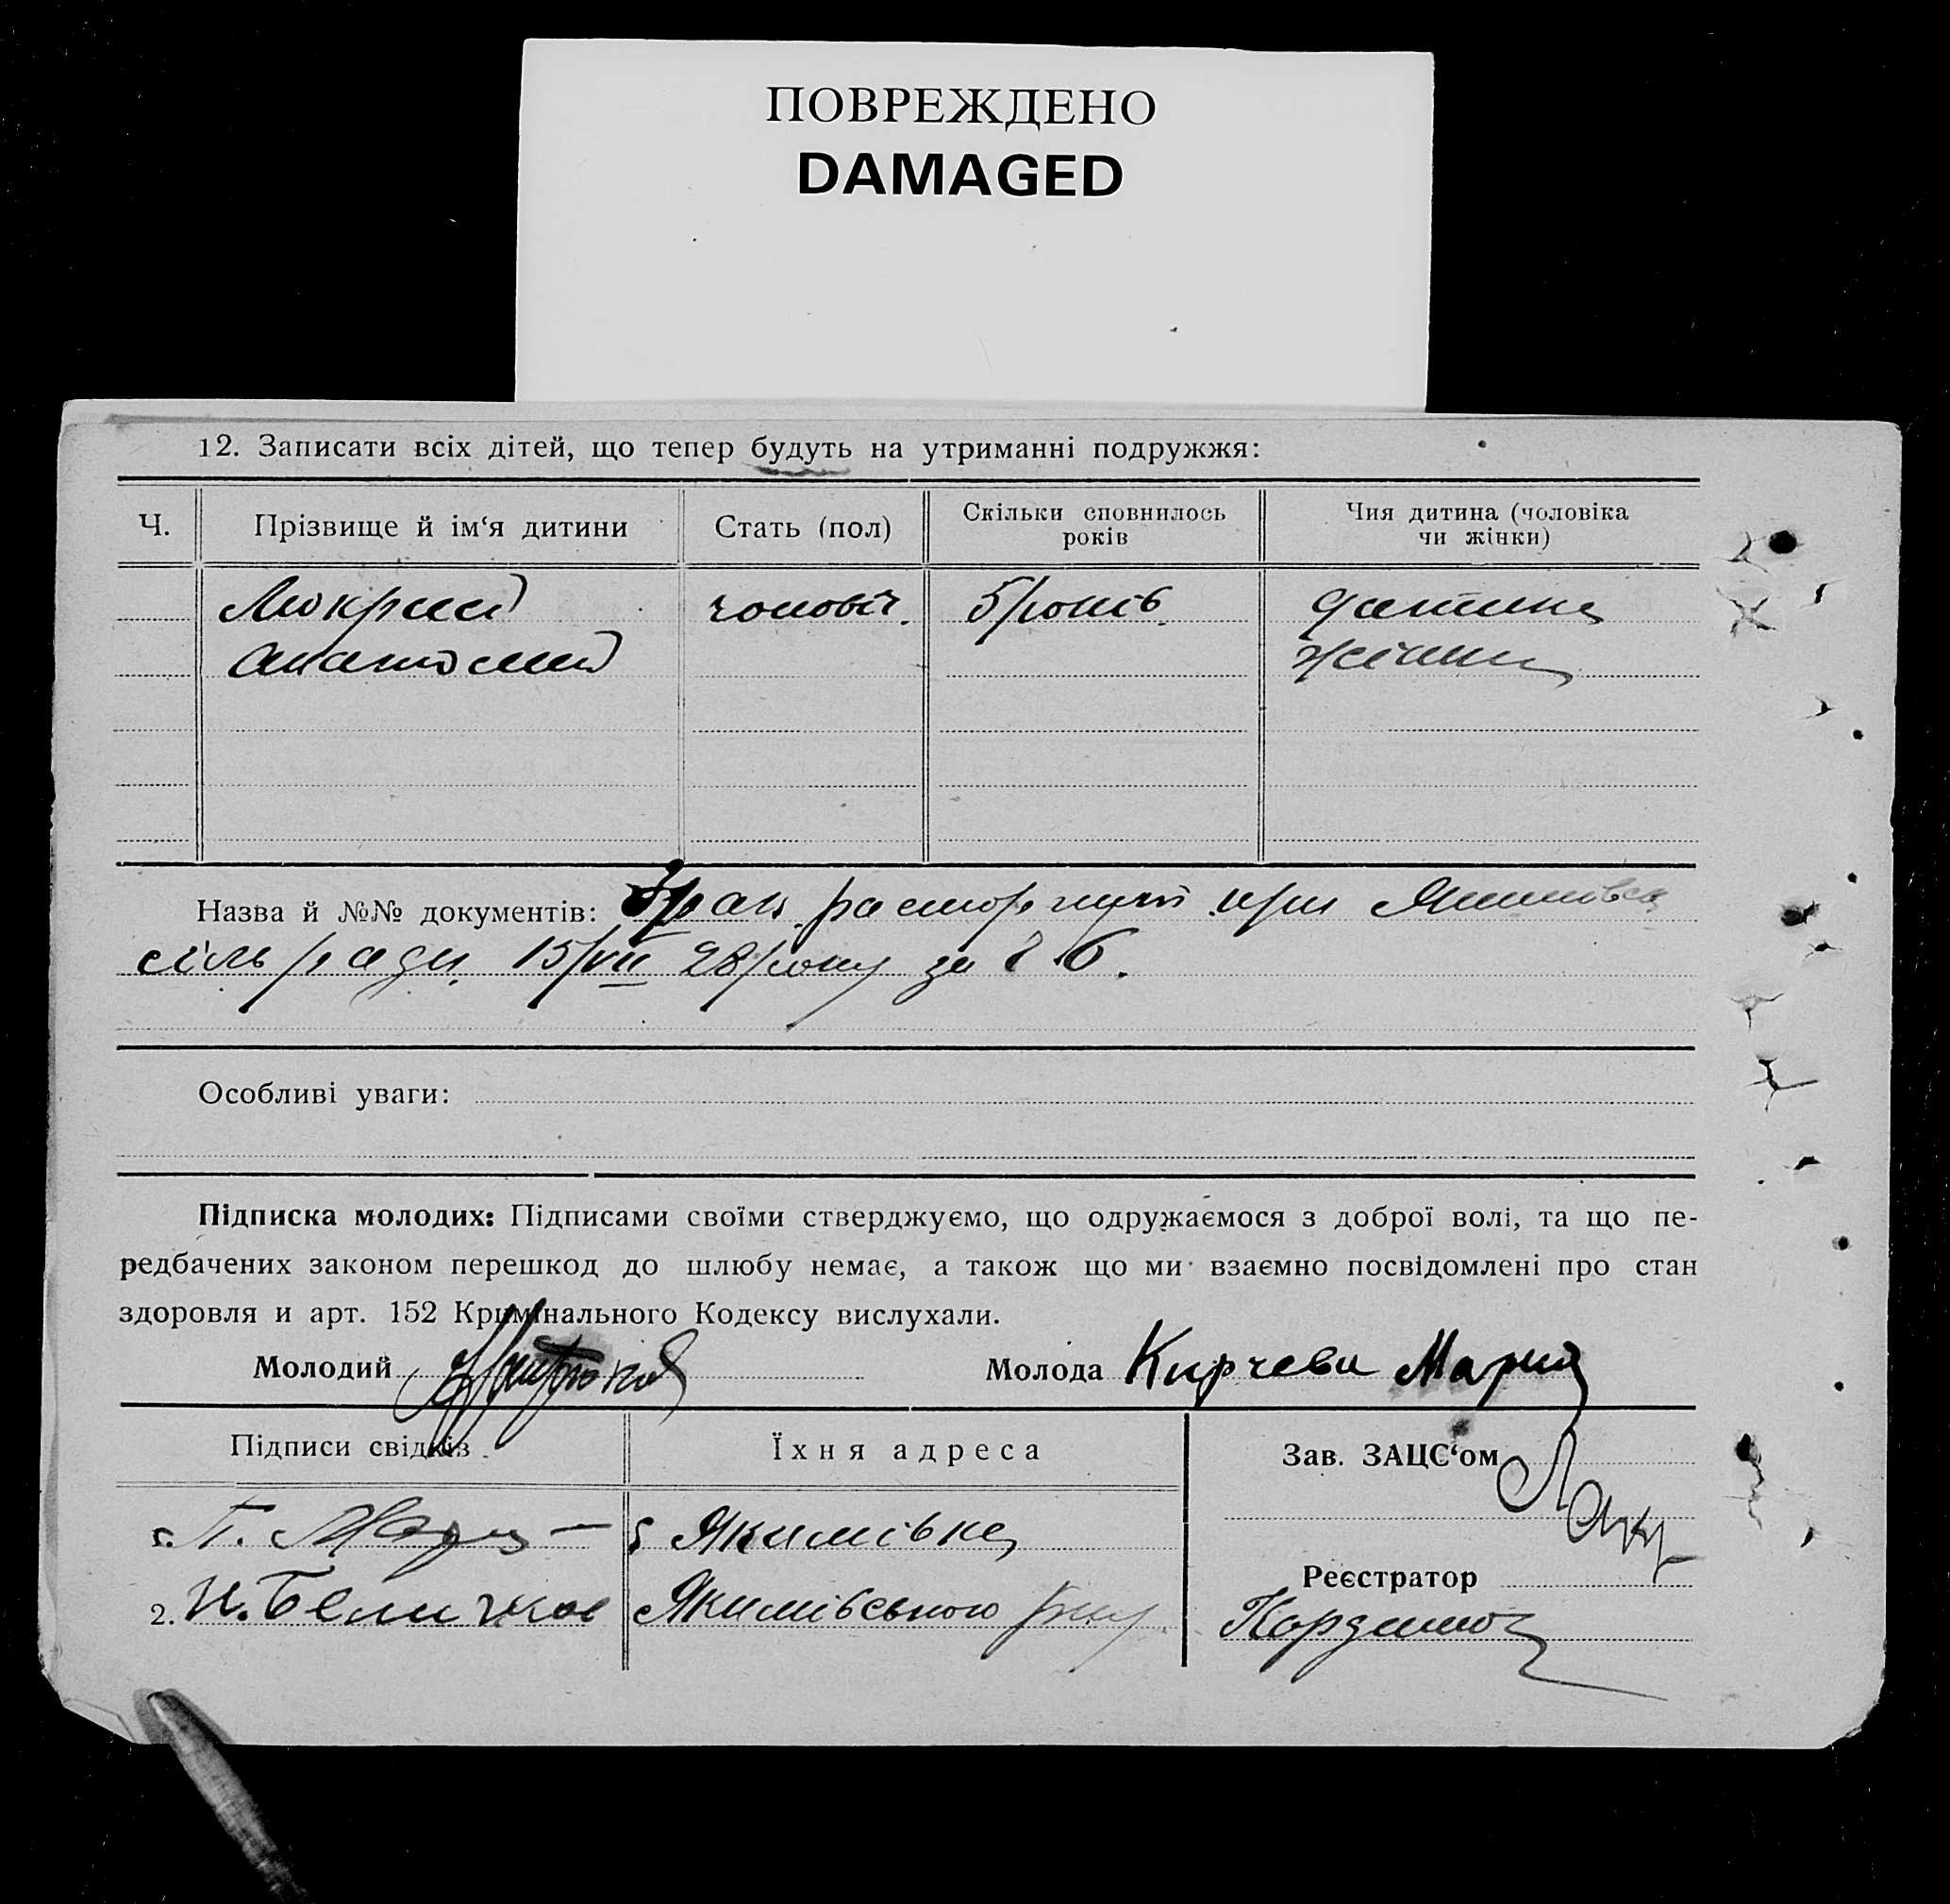 ПОВРЕЖДЕНО
DAMAGED
12. Записати всіх дітей, що тепер будуть на утриманні подружжя:
Ч. Прізвище й ім‘я дитини Стать (пол) Скільки сповнилось років Чия дитина (чоловіка чи жінки)
Мокрий чоловіч. 5 років. дитина
Анатолий жінки
Назва й №№ документів: Брак расторгнут при Якимівск
сільради 15/VII 28 року за № 6.
Особливі уваги:
Підписка молодих: Підписами своїми стверджуємо, що одружаємося з доброї волі, та що пе-
редбачених законом перешкод до шлюбу немає, а також що ми взаємно посвідомлені про стан
здоровля и арт. 152 Кримінального Кодексу вислухали.
Молодий Молода Кирчева Мария
Підписи свідків Їхня адреса Зав. ЗАЦС‘ом
1. Г. с Якимівка
Реєстратор
2. Якимівського рну